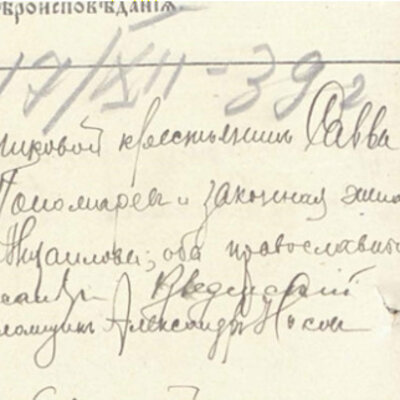 ѣроисповѣданія.
17/XII-39 г
никовой крестьянинъ Савва
Пономаревъ и законная жена
оба православные
Введенский
Александръ